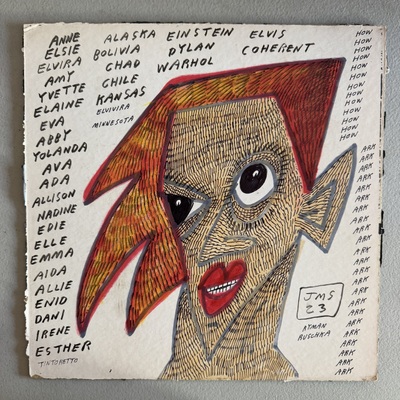 ANNE ALASKA EINSTEIN ELVIS
ELSIE BOLIVIA DYLAN COHERENT
ELVIRA CHAD WARHOL
AMY CHILE
YVETTE KANSAS
ELAINE ELVIVIRA
EVA MINNESOTA
ABBY
YOLANDA
AVA
ADA
ALLISON
NADINE
EDIE
ELLE
EMMA
AIDA
ALLIE
ENID
DANI
IRENE
ESTHER
TINTORETTO
HOW
HOW
HOW
HOW
HOW
HOW
HOW
HOW
HOW
HOW
HOW
HOW
ARK
ARK
ARK
ARK
ARK
ARK
ARK
ARK
ARK
ARK
ARK
ARK
ARK
ARK
ARK
ARK
ARK
ARK
ARK
ARK
ARK
JMS
23
RYMAN
RUSCHKA